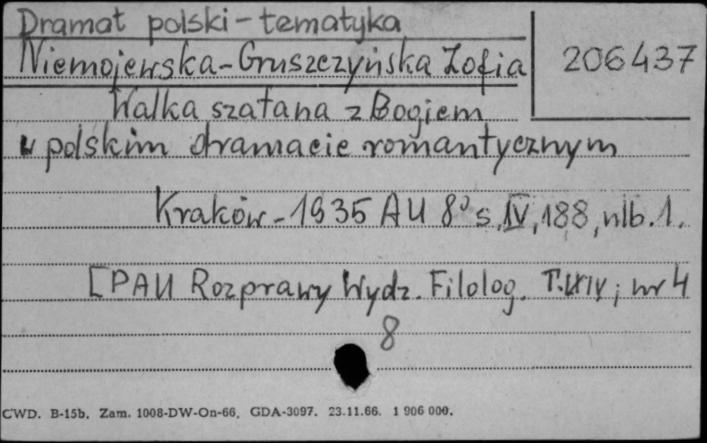 Dramat polski - tematyka
Niemojewska-Gruszczyńska Zofia
206437
Walka szatana z Bogiem
w polskim dramacie romantycznym
Kraków - 1935 AU 8° s. IV, 188, nlb. 1.
[PAU Rozprawy Wydz. Filolog. T. LXIV; nr 4
8
CWD. B-15b. Zam. 1008-DW-On-66. GDA-3097. 23.11.66. 1 906 000.